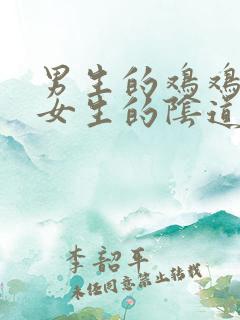 男生的鸡鸡
女生的陰道
李韶平
未经同意禁止转载